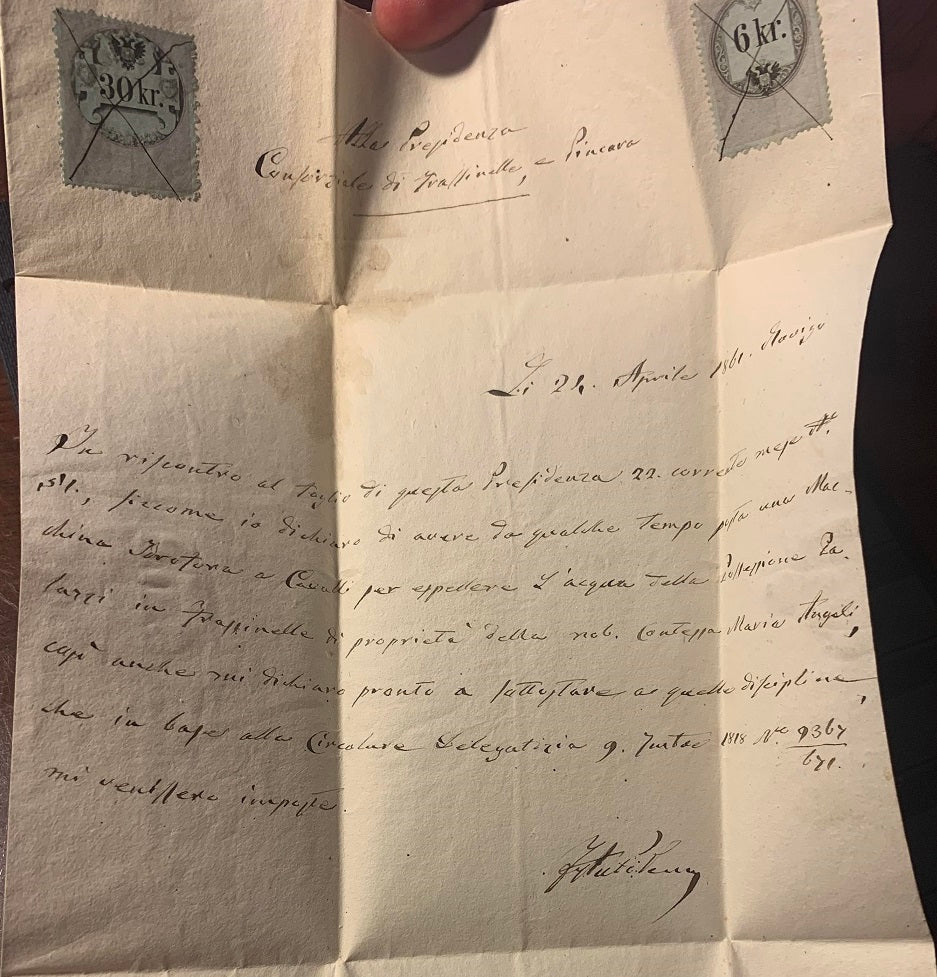 30 kr.
6 kr.
Alla Presidenza
Consorziale di Frassinelle, e Pincara
Li 24. Aprile 1861. Rovigo
In riscontro al foglio di questa Presidenza 22. corrente mese N.°
151., siccome io dichiaro di avere da qualche tempo posta una Mac-
china Idrofora a Cavalli per espellere l'acqua della Possessione Pa-
lazzi in Frassinelle di proprietà della nob. Contessa Maria Angeli,
così anche mi dichiaro pronto a sottostare a quelle discipline,
che in base alla Circolare Delegatizia 9. 1818 N.° 9367
mi venissero imposte.